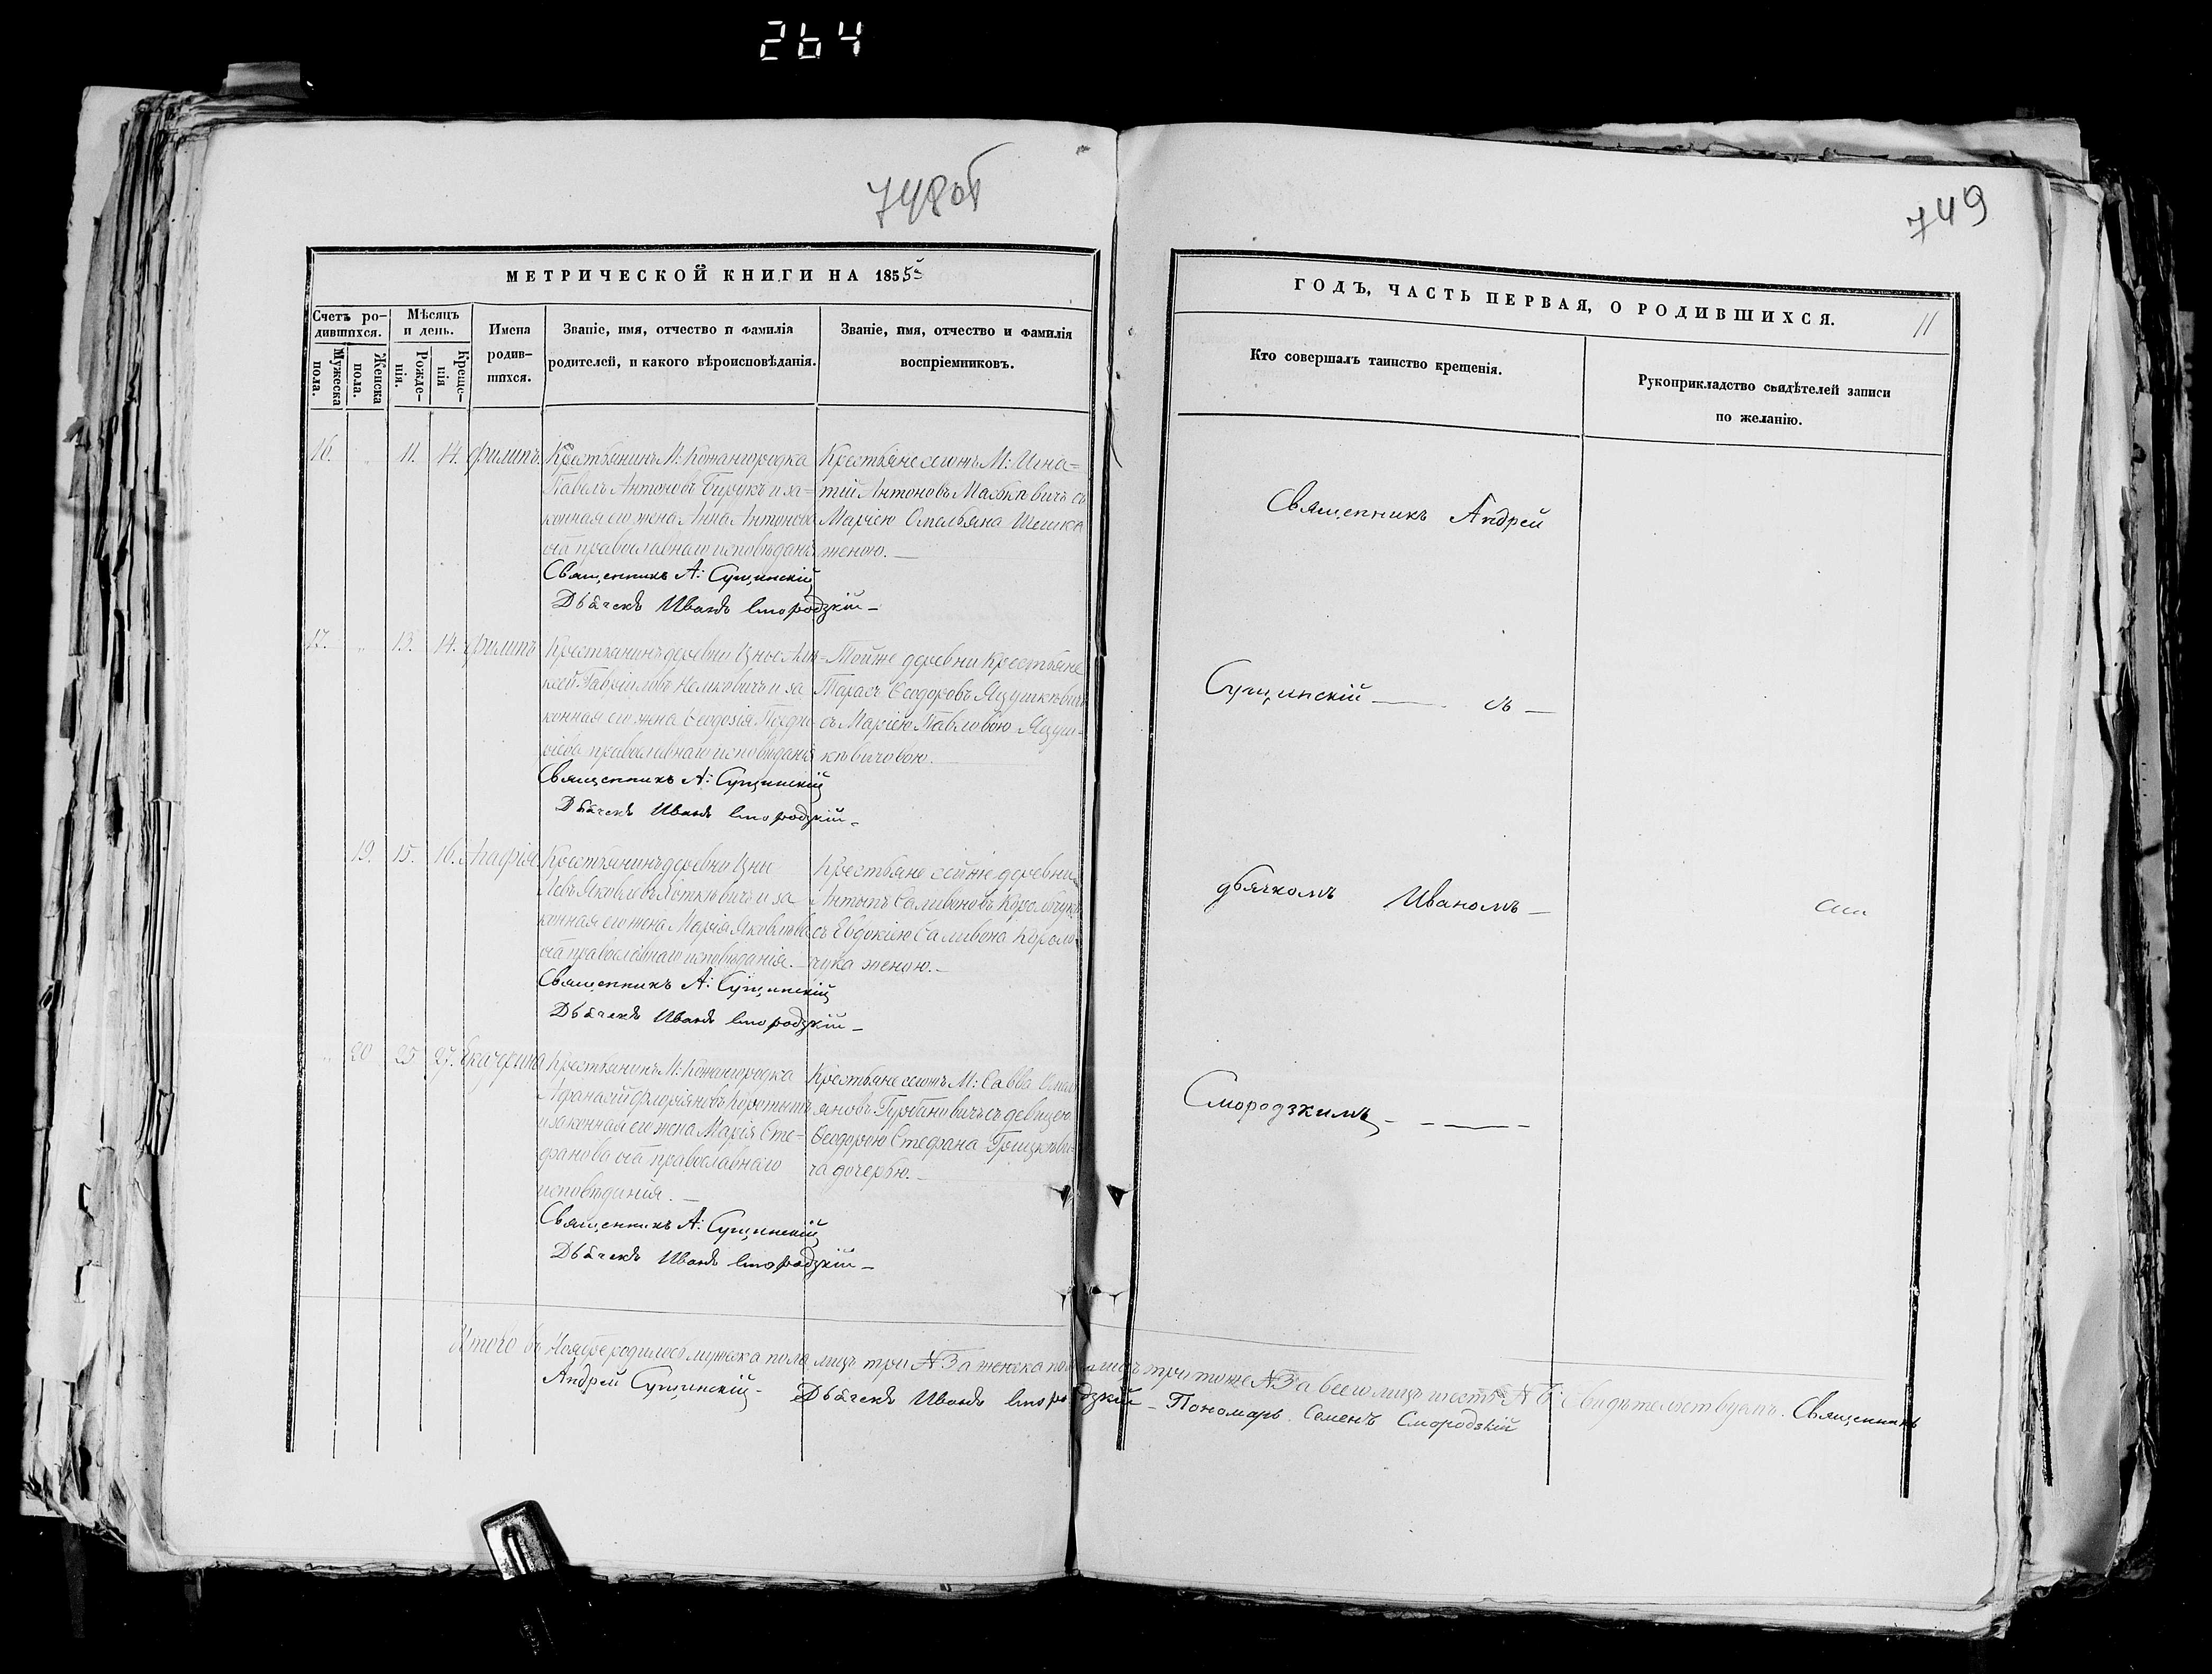 264
748об
749
МЕТРИЧЕСКОЙ КНИГИ НА 1855
ГОДЪ, ЧАСТЬ ПЕРВАЯ, О РОДИВШИХСЯ.
11
Счетъ ро-
дившихся.
Мужеска пола.
Женска пола.
Мѣсяцъ
и день.
Рожде-
нія.
Креще-
нія
Имена
родив-
шихся.
Званіе, имя, отчество и фамилія
родителей, и какого вѣроисповѣданія.
Званіе, имя, отчество и фамилія
воспріемниковъ.
Кто совершалъ таинство крещенія.
Рукоприкладство свидѣтелей записи
по желанію.
16. 11. 14. Филипъ.
Крестьянинъ М: Кожангородка
Павелъ Антоновъ и за=
конная его жена Анна Антонова
оба православнаго исповѣданія
Священникъ А: Сущинскій
Дьячекъ Иванъ Смородзкій
Крестьяне сегожъ М: Игна=
тій Антоновъ съ
Маріею Омельяна Шешка
женою.
17. 13. 14. Филипъ
Крестьянинъ деревни Цны Але=
ксей Гавріиловъ и за
конная его жена Феодозія
православнаго исповѣданія
Священникъ А: Сущинскій
Дьячекъ Иванъ Смородзкій
Тойже деревни крестьяне
Тарасъ Феодоровъ Яцушкѣвичъ
съ Маріею Павловою Яцуш-
кѣвичовою.
19. 15. 16. Агафія
Крестьянинъ деревни Цны
Левъ Яковлевъ и за
конная его жена Марія Яковлева
оба православнаго исповѣданія.
Священникъ А: Сущинскій
Дьячекъ Иванъ Смородзкій
Крестьяне сейже деревни
Антонъ Саливоновъ Корольчукъ
съ Евдокіею Саливона Король
чука женою.
20 25 27. Екатерина
Крестьянинъ М: Кожангородка
Афанасій Флоріяновъ
и законная его жена Марія Сте-
фанова оба православнаго
исповѣданія.
Священникъ А: Сущинскій
Дьячекъ Иванъ Смородзкій
Крестьяне сегожъ М: Савва Омел
яновъ съ девицею
Феодорою Стефана Грицкѣви-
ча дочерью.
Священникъ Андрей
Сущинскій съ
дьячкомъ Иваномъ
Смородзкимъ
Итого въ Ноябрѣ родилось мужеска пола лицъ три №3 а женска пола лицъ три тоже №3 а всего лицъ шесть №6 Свидѣтельствуемъ. Священникъ
Андрей Сущинскій Дьячекъ Иванъ Смородзкій Пономарь Семенъ Смородзкій